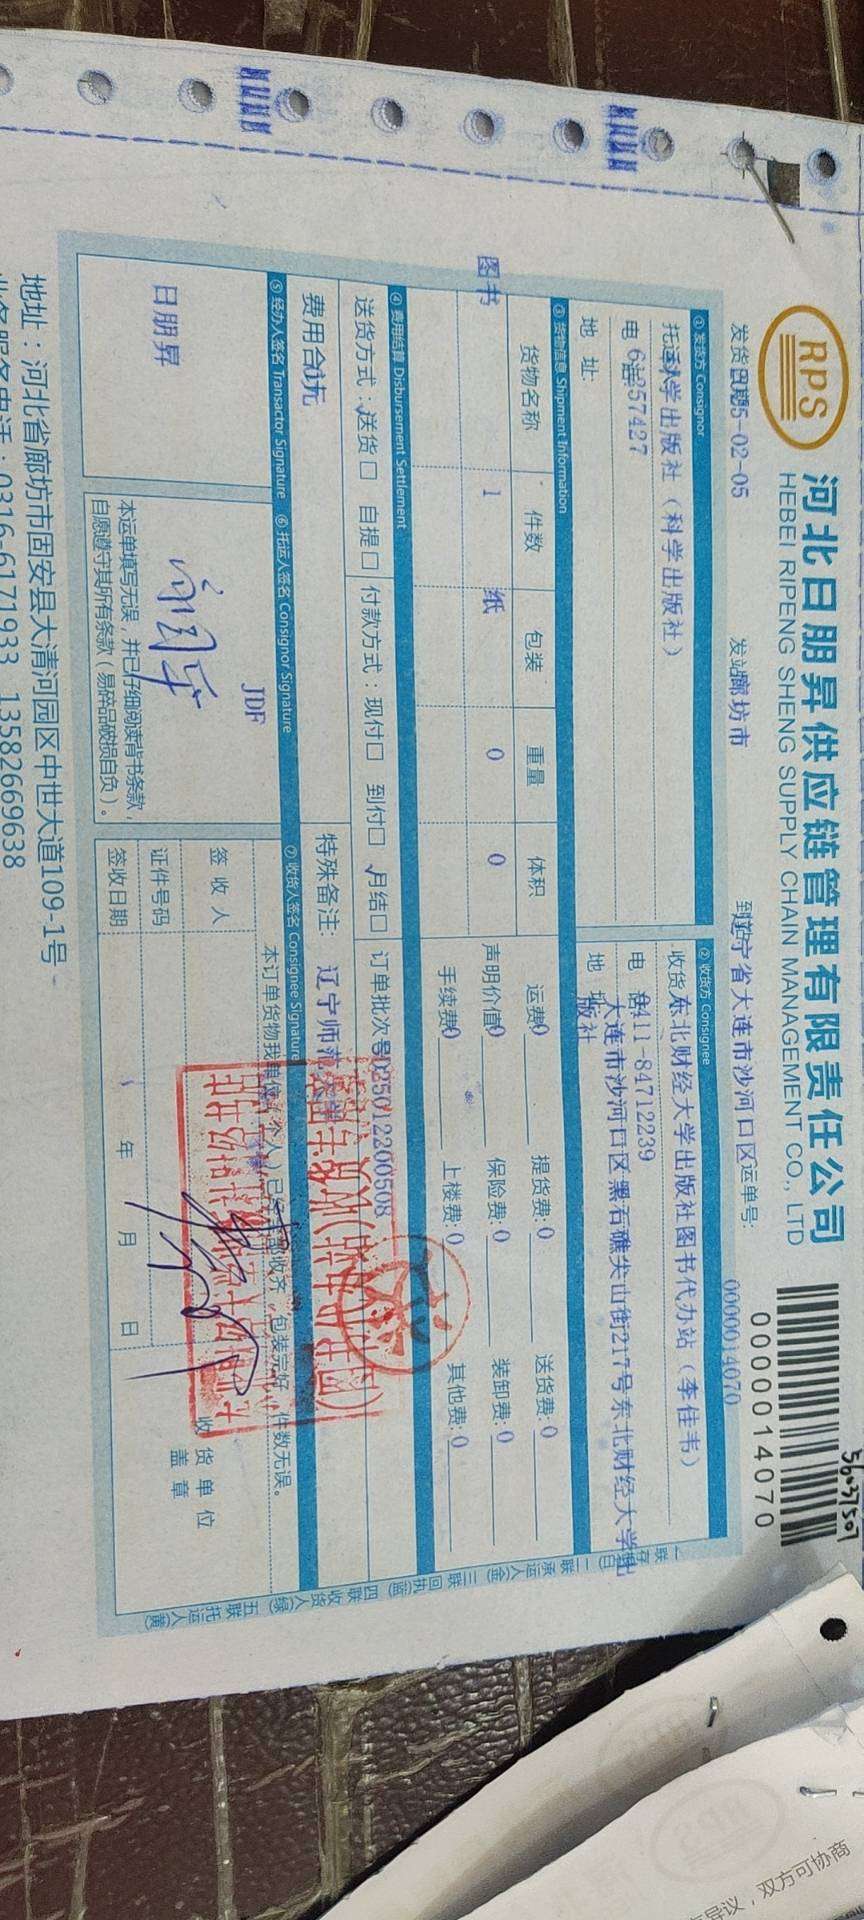 RPS
河北日朋昇供应链管理有限责任公司
HEBEI RIPENG SHENG SUPPLY CHAIN MANAGEMENT CO., LTD
0000014070
发货日期 5-02-05
发站 廊坊市
到站 辽宁省大连市沙河口区
运单号: 0000014070
① 发货方 Consignor
托运 科学出版社（科学出版社）
电 话 6 357427
地 址:
② 收货方 Consignee
收货 东北财经大学出版社图书代办站（李佳韦）
电 话 0411-84712239
地 址 大连市沙河口区黑石礁尖山街217号东北财经大学出版社
③ 货物信息 Shipment Information
货物名称 件数 包装 重量 体积
图书 1 纸 0 0
运费 0 提货费: 0 送货费: 0
声明价值 0 保险费: 0 装卸费: 0
手续费 0 上楼费: 0 其他费: 0
④ 费用结算 Disbursement Settlement
送货方式: √送货□ 自提□
付款方式: 现付□ 到付□ √月结□
订单批次号 025012200508
费用合 0 元
特殊备注: 辽宁师范大学
⑤ 经办人签名 Transactor Signature
日朋昇
⑥ 托运人签名 Consignor Signature
JDF
本运单填写无误，并已仔细阅读背书条款，
自愿遵守其所有条款（易碎品破损自负）。
⑦ 收货人签名 Consignee Signature
本订单货物我单位（个人）已经全部收齐，包装完好，件数无误。
签 收 人
证件号码
签收日期 年 月 日
收货单位
盖章
一联存根(白) 二联承运人(金) 三联回执(蓝) 四联收货人(绿) 五联托运人(黄)
地址：河北省廊坊市固安县大清河园区中世大道109-1号
业务服务电话：0316-6171933 13582669638
异议，双方可协商